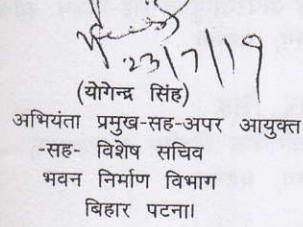 23/7/19
(योगेन्द्र सिंह)
अभियंता प्रमुख-सह-अपर आयुक्त
-सह- विशेष सचिव
भवन निर्माण विभाग
बिहार पटना।